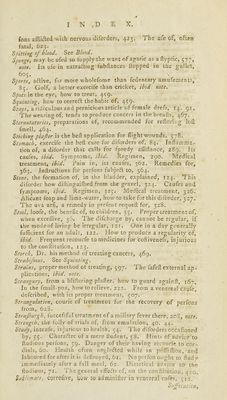 I N D E X.
sons afflicted with nervous disorders, 425. The use of, often
fatal, 623.
Spitting of blood. See Blood.
Sponge, may be used to supply the want of agaric as a styptic, 577,
note. Its use in extracting substances stopped in the gullet,
605.
Sports, active, far more wholesome than sedentary amusements,
83. Golf, a better exercise than cricket, ibid note.
Spots in the eye, how to treat, 459.
Squinting, how to correct the habit of, 459.
Stays, a ridiculous and pernicious article of female dress, 14. 91.
The wearing of, tends to produce cancers in the breasts, 467.
Sternutatories, preparations of, recommended for restoring lost
smell, 464.
Sticking plaster is the best application for slight wounds, 578.
Stomach, exercise the best cure for disorders of, 84. Inflamma-
tion of, a disorder that calls for speedy assistance, 289. Its
causes, ibid. Symptoms, ibid. Regimen, 290. Medical
treatment, ibid. Pain in, its causes, 362. Remedies for,
363. Instructions for persons subject to, 364.
Stone, the formation of, in the bladder, explained, 124. This
disorder how distinguished from the gravel, 324. Causes and
Symptoms, ibid. Regimen, 325. Medical treatment, 326.
Alicant soap and lime-water, how to take for this disorder, 327.
The uva ursi, a remedy in present request for, 328.
Stool, loose, the benefit of, to children, 55. Proper treatment of,
when excessive, 56. The discharge by, cannot be regular, if
the mode of living be irregular, 121. One in a day generally
sufficient for an adult, 122. How to produce a regularity of,
ibid. Frequent recourse to medicines for costiveness, injurious
to the constitution, 123.
Storck, Dr. his method of treating cancers, 469.
Strabismus. See Squinting.
Strains, proper method of treating, 597. The safest external ap-
plications, ibid. note.
Strangury, from a blistering plaster, how to guard against, 162.
In the small-pox, how to relieve, 222. From a venereal cause,
described, with its proper treatment, 507.
Strangulation, course of treatment for the recovery of persons
from, 628.
Strasburgh, successful treatment of a military fever there, 208, note.
Strength, the folly of trials of, from emulation, 40, 41.
Study, intense, injurious to health, 53. The disorders occasioned
by, 55. Character of a mere student, 58. Hints of advice to
studious persons, 59. Danger of their having recourse to cor-
dials, 60. Health often neglected while in possession, and
laboured for after it is destroyed, 61. No person ought to study
immediately after a full meal, 62. Dietetical advice to the
studious, 71. The general effects of, on the constitution, 410.
Sublimate, corrosive, how to administer in venereal cases, 512.
Suffocation,